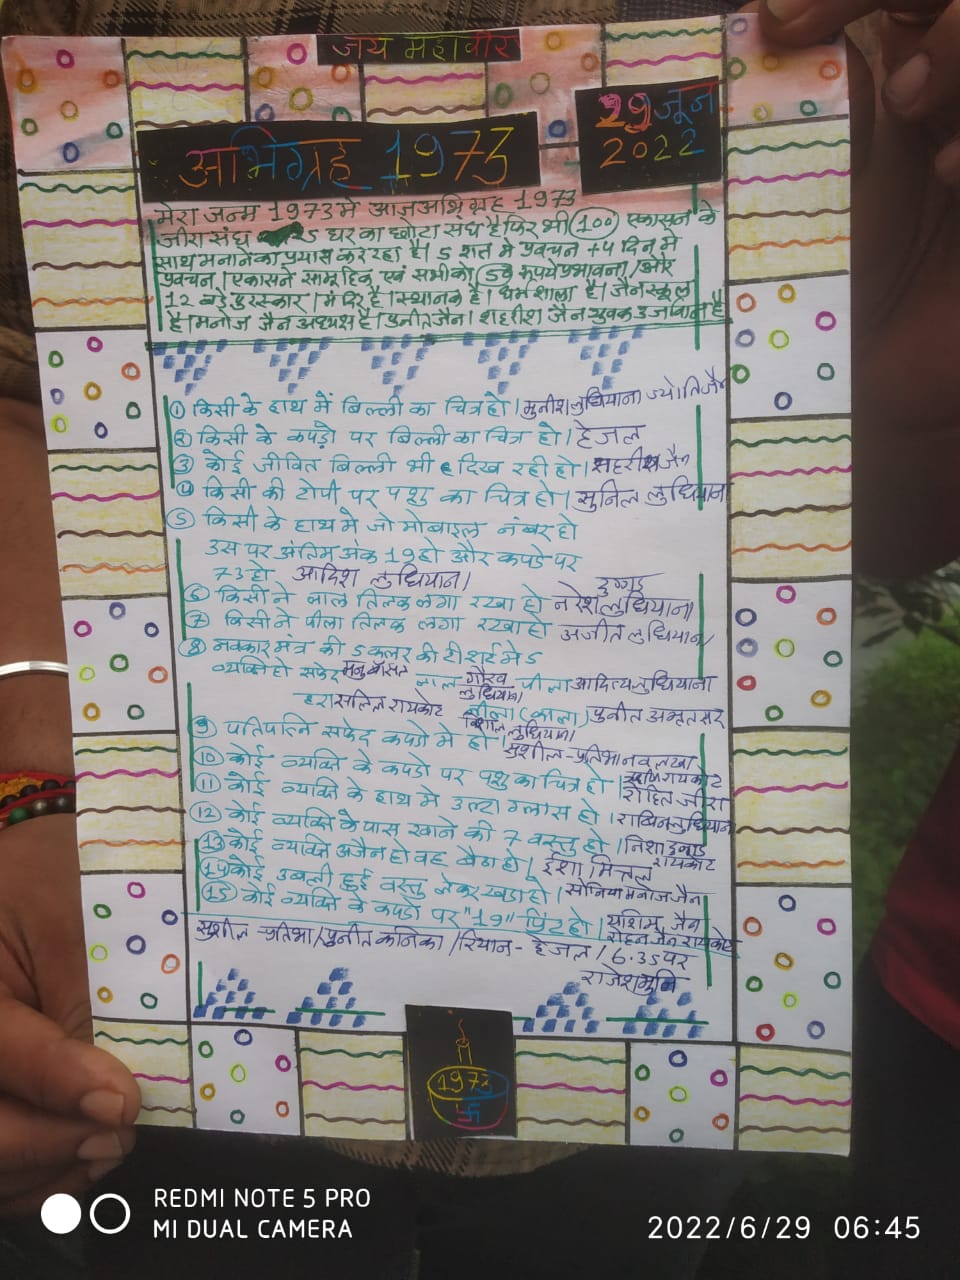 जय महावीर
अभिग्रह 1973
29 जून
2022
मेरा जन्म 1973 मे आज अभिग्रह 1973
जीरा संघ 25 घर का छोटा संघ है फिर भी (100) एकासने के
साथ मनाने का प्रयास कर रहा है। 5 रात मे प्रवचन +4 दिन मे
प्रवचन। एकासने सामूहिक एवं सभी को रूपये प्रभावना/और
12 बडे पुरस्कार। मंदिर है। स्थानक है। धर्मशाला है। जैन स्कूल
है। मनोज जैन अध्यक्ष है। पुनीत जैन। शहरीश जैन युवक उर्जावान है
① किसी के हाथ में बिल्ली का चित्र हो। मुनीश लुधियाना ज्योति जैन
② किसी के कपड़ो पर बिल्ली का चित्र हो। हेजल
③ कोई जीवित बिल्ली भी दिख रही हो। शहरीश जैन
④ किसी की टोपी पर पशु का चित्र हो। सुनिल लुधियाना
⑤ किसी के हाथ मे जो मोबाइल नंबर हो
उस पर अंतिम अंक 19 हो और कपडे पर
73 हो आदिश लुधियाना
⑥ किसी ने लाल तिलक लगा रखा हो नरेश दुग्गड लुधियाना
⑦ किसी ने पीला तिलक लगा रखा हो अजीत लुधियाना
⑧ नवकार मंत्र की 5 कलर की टी शर्ट मे 5
व्यक्ति हो सफेद मनु बांसल लाल गौरव लुधियाना पीला आदित्य लुधियाना
हरा सलिल रायकोट नीला विशाल लुधियाना (काला) पुनीत अमृतसर
⑨ पति पत्नि सफेद कपडो मे हो। सुशील-प्रतिभा नवलखा
⑩ कोई व्यक्ति के कपडो पर पशु का चित्र हो। रायकोट
⑪ कोई व्यक्ति के हाथ मे उल्टा ग्लास हो। रोहित जीरा
⑫ कोई व्यक्ति के पास खाने की 7 वस्तु हो। लुधियाना
⑬ कोई व्यक्ति अजैन हो वह बैठा हो। ईशा मित्तल निशा रायकोट
⑭ कोई उबली हुई वस्तु लेकर खडा हो। सोनिया मनोज जैन
⑮ कोई व्यक्ति के कपडो पर "19" प्रिंट हो। यशिम जैन
रोहन जैन रायकोट
सुशील-प्रतिभा/पुनीत कनिका/रियान-हेजल/6.35 पर
राजेशमुनि
1973
REDMI NOTE 5 PRO
MI DUAL CAMERA
2022/6/29 06:45